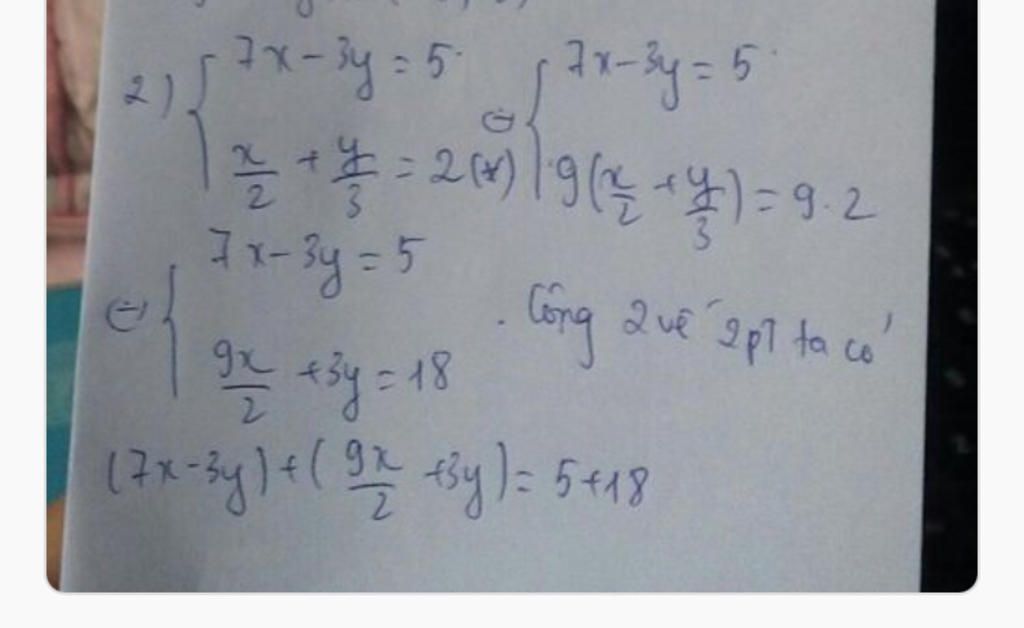 2) { 7x - 3y = 5 ⇔ { 7x - 3y = 5
x/2 + y/3 = 2 (*) 9(x/2 + y/3) = 9.2
⇔ { 7x - 3y = 5
9x/2 + 3y = 18 . Cộng 2 vế 2pT ta có
(7x - 3y) + (9x/2 + 3y) = 5 + 18